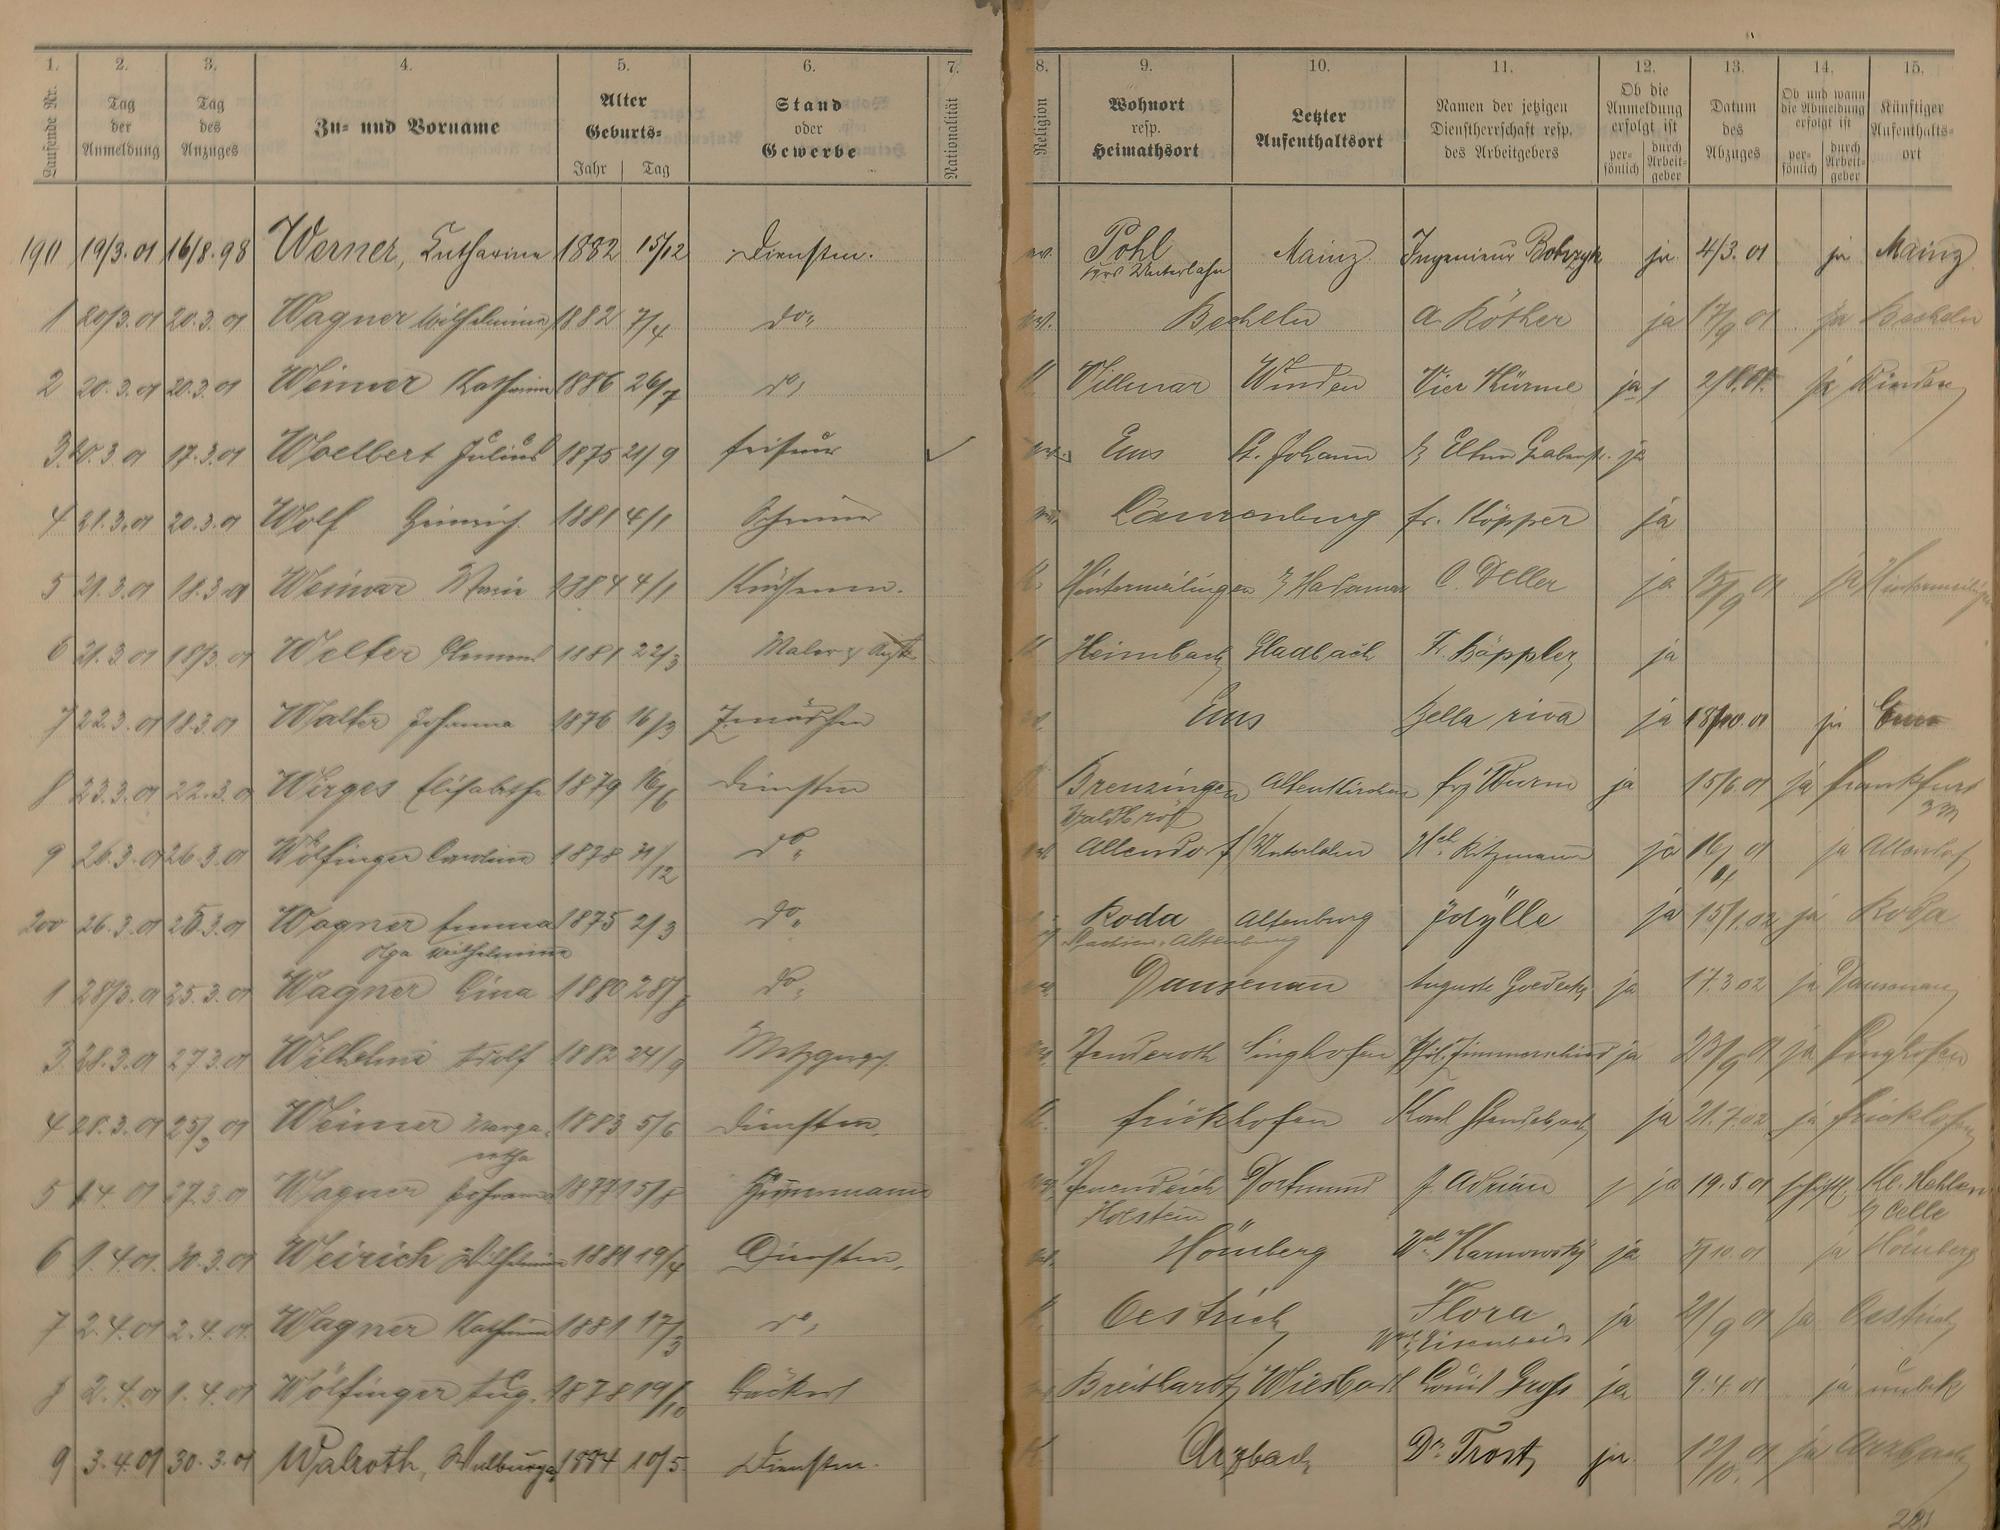 1. 2. 3. 4. 5. 6. 7. 8. 9. 10. 11. 12. 13. 14. 15.
Laufende Nr. Tag der Anmeldung Tag des Anzuges Zu- und Vorname Alter Geburts- Jahr Tag Stand oder Gewerbe Nationalität Religion Wohnort resp. Heimathsort Letzter Aufenthaltsort Namen der jetzigen Dienstherrschaft resp. des Arbeitgebers Ob die Anmeldung erfolgt ist per- sönlich durch Arbeit- geber Datum des Abzuges Ob und wann die Abmeldung erfolgt ist per- sönlich durch Arbeit- geber Künftiger Aufenthalts- ort
190 19/3. 01 16/8. 98 Werner, Katharina 1882 15/12 Dienstm. ev. Pohl Mainz Ingenieur ja 4/3. 01 ja Mainz
Unterlahn
1 20/3. 01 20. 3. 01 Wagner Wilhelmine 1882 7/4 do. ev. Becheln A. Köther ja 17/9 01 ja Becheln
2 20. 3. 01 20. 3. 01 Weimer Katharina 1886 26/7 do. K. Villmar Winden Vier Türme ja 2/8. 01. ja Winden
3 20. 3 01 17. 3. 01 Woelbert Julius 1875 21/9 Friseur ev. Ems St. Johann ja
4 21. 3. 01 20. 3. 01 Wolf Heinrich 1881 4/1 Schreiner Laurenburg Fr. Köpper ja
5 21. 3. 01 18. 3. 01 Weimar Maria 1884 4/1 K. Hintermeilingen Hadamar C. Deller ja 15/9 01 ja Hintermeilingen
6 21. 3 01 18/3. 01 Welter Clemens 1881 22/3 Maler K. Heimbach Gladbach Fr. Häppler ja
7 22. 3. 01 18. 3 01 Walter Johanna 1876 16/3 ev. Ems Bella riva ja 18/10. 01 ja Ems
8 23. 3. 01 22. 3. 01 Wirges Elisabeth 1879 16/6 Dienstm K. Brenzingen Altenkirchen Frz Wurm ja 15/6. 01 ja Frankfurt
Waldbröl a/M
9 26. 3. 01 26. 3. 01 Wölfinger Caroline 1878 21/12 do. ev. Allendorf Unterlahn Wwe. Ritzmann ja 16/ 01 ja Allendorf
200 26. 3. 01 25. 3. 01 Wagner Emma 1875 2/3 do. Roda Altenburg Idylle ja 15/1. 02 ja Roda
Olga Wilhelmine Sachsen-Altenburg
1 28/3. 01 25. 3. 01 Wagner Lina 1880 28/8 do. ev. Dausenau Auguste Goedecke ja 17. 3 02 ja Dausenau
3 28. 3. 01 27. 3. 01 Wilhelmi Adolf 1882 24/9 Metzgerges. ev. Renderoth Singhofen Phil. Zimmerschied ja 23/9 01 ja Singhofen
4 28. 3. 01 25/3 01 Weimer Marga- 1883 5/6 Dienstm. K. Frickhofen Karl ja 21. 7. 02 ja Frickhofen
retha
5 1. 4. 01 27. 3. 01 Wagner Johannes 1877 15/8 Zimmermann ev. Dortmund J. Adrian ja 19. 5. 01 Kl. Hehlen
Holstein b/ Celle
6 1. 4. 01. 30. 3. 01 Weirich Wilhelmine 1881 19/4 Dienstm. ev. Hömberg Wwe. Karnowsky ja 5/10. 01 ja Hömberg
7 2. 4. 01 2. 4. 01. Wagner Katharina 1881 17/3 do. K. Oestrich Flora ja 21/9 01 ja Oestrich
8 2. 4. 01 1. 4. 01 Wölfinger Aug. 1878 19/10 Bäcker ev. Breithardt Wiesbad. Louis Gross ja 9. 4. 01 ja unbek
9 3. 4. 01 30. 3. 01 Walroth, Walburga 1884 10/5 Dienstm. K. Arzbach Dr. Trost ja 12/10. 01 ja Arzbach